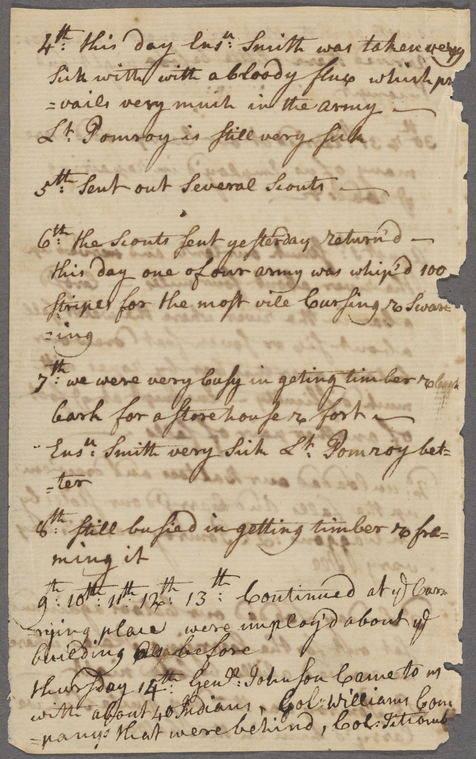 4th: this day Ensn: Smith was taken very
sick with with a bloody flux which pr
=vails very much in the army —
Lt. Pomroy is still very sick
5th: Sent out Several Scouts —
6th: the Scouts sent yesterday return'd —
this day one of our army was whip'd 100
stripes for the most vile Cursing & Swar=
=ing
7th: we were very busy in geting timber &
bark for a storehouse & fort —
Ensn: Smith very Sick Lt. Pomroy bet=
=ter
8th: still busied in getting timber & fra=
ming it
9th: 10th: 11th: 12th: 13th: Continued at ye Carr
rying place were imploy'd about ye
building as before
thursday 14th: Genll: Johnson Came to us
with about 40 Indians, Col: Williams Com
=panys that were behind, Col: Titcomb